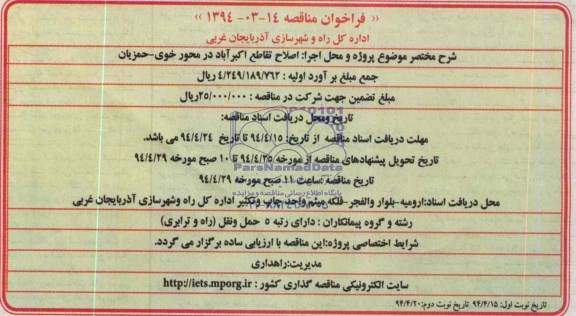 « فراخوان مناقصه ۱۴-۰۳- ۱۳۹۴ »
اداره کل راه و شهرسازی آذربایجان غربی
شرح مختصر موضوع پروژه و محل اجرا: اصلاح تقاطع اکبرآباد در محور خوی-حمزیان
جمع مبلغ بر آورد اولیه : ۴/۲۴۹/۱۸۹/۷۶۲ ریال
مبلغ تضمین جهت شرکت در مناقصه : ۲۵/۰۰۰/۰۰۰ریال
تاریخ ومحل دریافت اسناد مناقصه:
مهلت دریافت اسناد مناقصه از تاریخ: ۹۴/۴/۱۵ تا تاریخ ۹۴/۴/۲۴ می باشد.
تاریخ تحویل پیشنهادهای مناقصه از مورخه ۹۴/۴/۲۵ تا ۱۰ صبح مورخه ۹۴/۴/۲۹
ParsNamadData
تاریخ مناقصه ساعت ۱۱ صبح مورخه ۹۴/۴/۲۹
پایگاه اطلاع رسانی مناقصه و مزایده
محل دریافت اسناد:ارومیه-بلوار والفجر-فلکه میثم واحد چاپ وتکثیر اداره کل راه وشهرسازی آذربایجان غربی
رشته و گروه پیمانکاران : دارای رتبه ۵ حمل ونقل (راه و ترابری)
شرایط اختصاصی پروژه:این مناقصه با ارزیابی ساده برگزار می گردد.
مدیریت:راهداری
سایت الکترونیکی مناقصه گذاری کشور : http://iets.mporg.ir
تاریخ نوبت اول: ۹۴/۴/۱۵ تاریخ نوبت دوم:۹۴/۴/۲۰